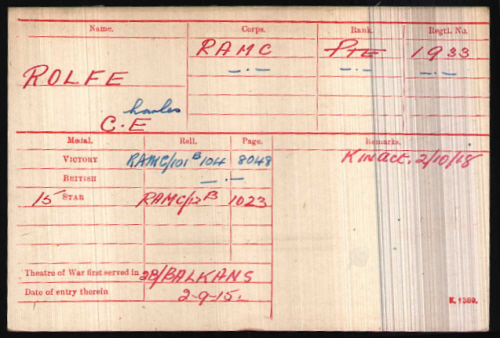 Name. Corps. Rank. Regtl. No.
RAMC Pte 1933
ROLFE -·- -·- -·-
harles
C.E
Medal. Roll. Page. Remarks.
VICTORY RAMC/101 B 104 8048 K in act. 2/10/18
BRITISH -·-
15 STAR RAMC/12 B 1023
Theatre of War first served in 2B/BALKANS
Date of entry therein 2-9-15.
K. 1380.